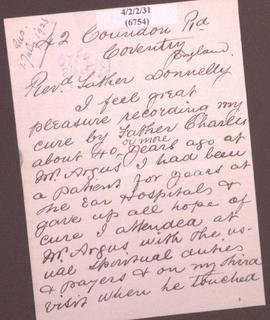 4/2/2/31
(6754)
42 Coundon Rd
Coventry
England.
Revd Father Donnelly
I feel great
pleasure recording my
cure by Father Charles
or more
about 40 years ago at
Mt Argus I had been
a patient for years at
the Ear Hospital, &
gave up all hope of
cure I attended at
Mt Argus with the us-
ual spiritual duties
& prayers & on my third
visit when he touched